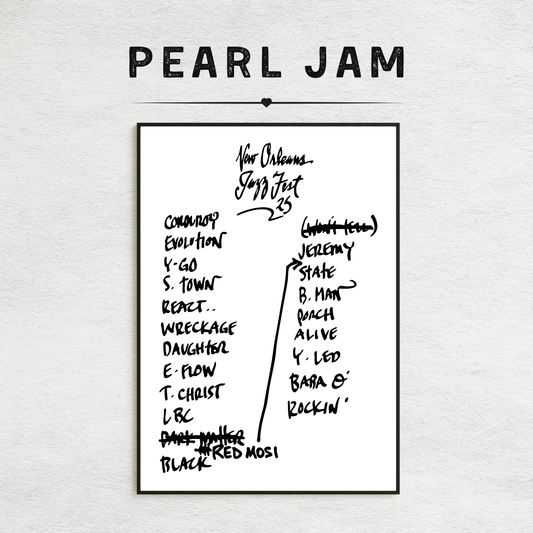 PEARL JAM
New Orleans
Jazz Fest
25
CORDUROY
EVOLUTION
Y-GO
S. TOWN
REACT..
WRECKAGE
DAUGHTER
E-FLOW
T. CHRIST
LBC
DARK MATTER
#RED MOSI
BLACK
(WON'T TELL)
JEREMY
STATE
B. MAN
PORCH
ALIVE
Y. LED
BABA O'
ROCKIN'